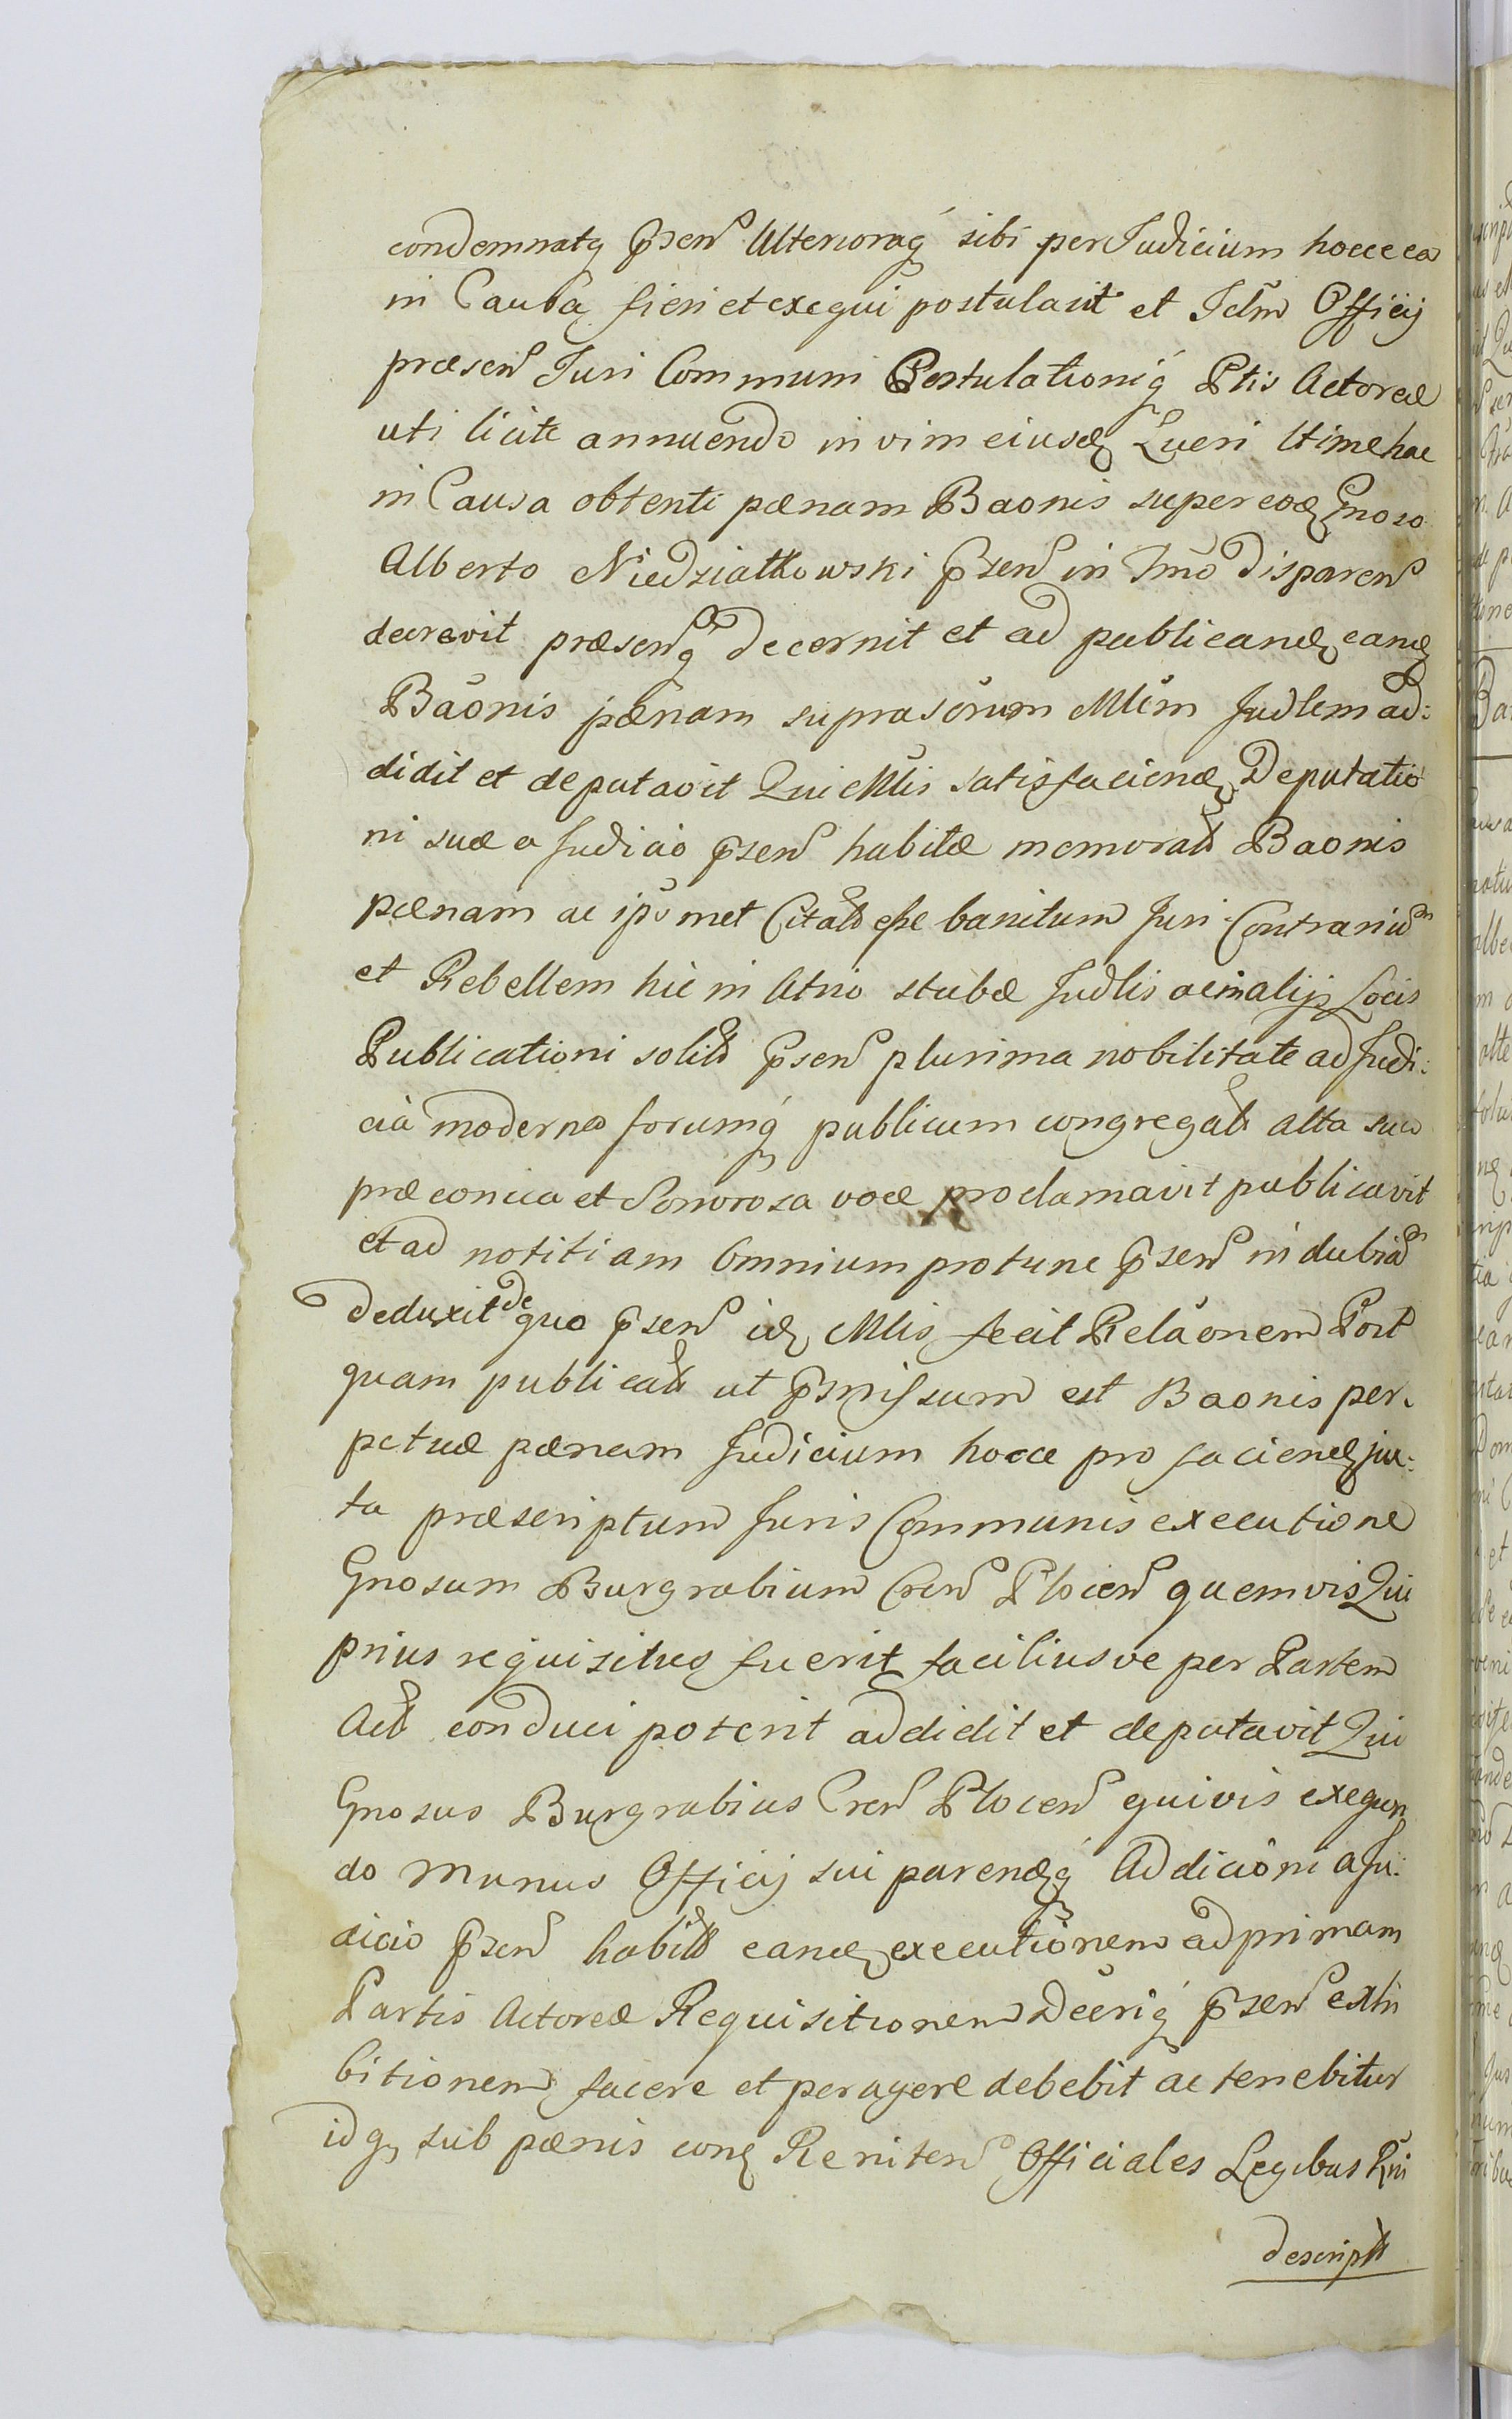 condemnatq̃ p̃sen Ulterioraq́ sibi per Judicium hocce ea
in Causa fieri et exequi postulavit et Jdm̃ Officij
præsen Juri Communi Postulationiq́ Ptis Actoreæ
uti licite annuendo in vim eiusd Lucri Utime hac
in Causa obtenti pænam Baonis super eod Gnoso
Alberto Niedziałkowski p̃sen in Tm̃o disparen
decrevit præsenq̃ decernit et ad publicand eand
Baõnis pænam suprasc̃rum Mlem Judlem ad:
didit et deputavit Qui Mlis satisfaciend Deputatio
ni suæ a Judicio p̃sen habitæ memorat Baonis
pænam ac ips̃met Citat esse banitum Juri Contrariu͂
et Rebellem hic in Atrio stubæ Judlis ac in alijs Locis
Publicationi solit p̃sen plurima nobilitate ad Judi:
cia moderna forumq́ publicum congregat alta sua
præconica et Sonorosa voce proclamavit publicavit
et ad notitiam Omnium protunc p̃sen indubia͂
deduxit de quo p̃sen id Mlis fecit Relãonem Post
quam publicat ut p̃missum est Baonis per.
petuæ pænam Judicium hocce pro faciend jux:
ta præscriptum Juris Communis executione
Gnosum Burgrabium Cren Plocen quemvis Qui
prius requisitus fuerit faciliusve per Partem
Act conduci poterit addidit et deputavit Qui
Gnosus Burgrabius Cren Plocen quivis exequen
do munus Officij sui parendq́ Addicioni a Ju:
dicio p̃sen habit eand executionem ad primam
Partis Actoreæ Requisitionem Decriq́ p̃sen exhi
bitionem facere et peragere debebit ac tenebitur
idq, sub pænis con Reniten Officiales Legibus Rni
descript